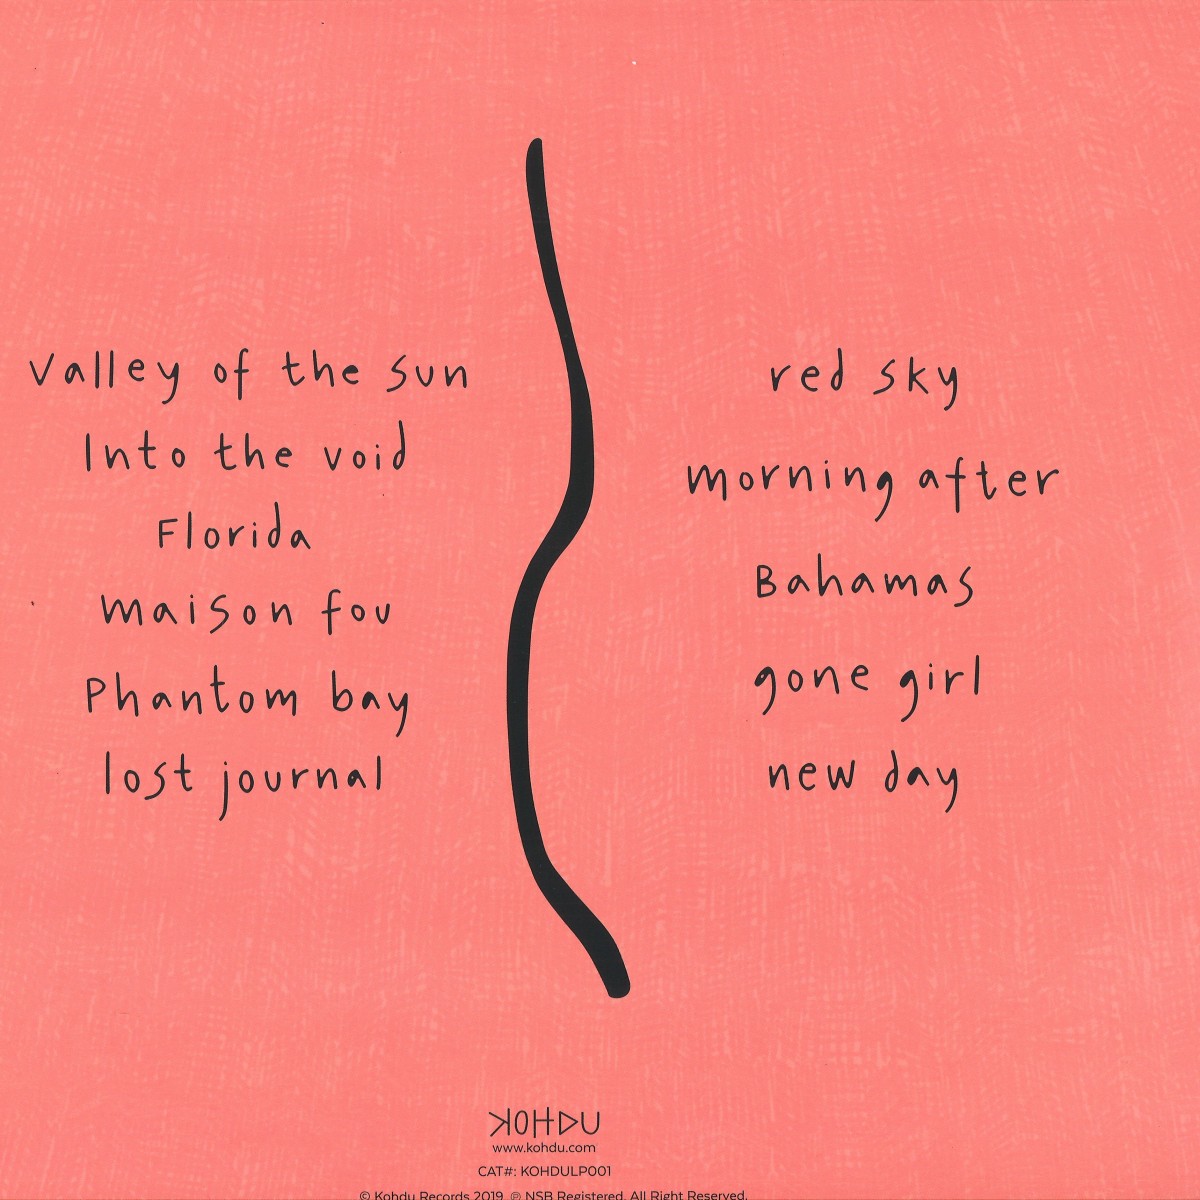 Valley of the sun
Into the void
Florida
maison fou
Phantom bay
lost journal
red sky
morning after
Bahamas
gone girl
new day
KOHDU
www.kohdu.com
CAT#: KOHDULP001
© Kohdu Records 2019 ℗ NSB Registered. All Right Reserved.